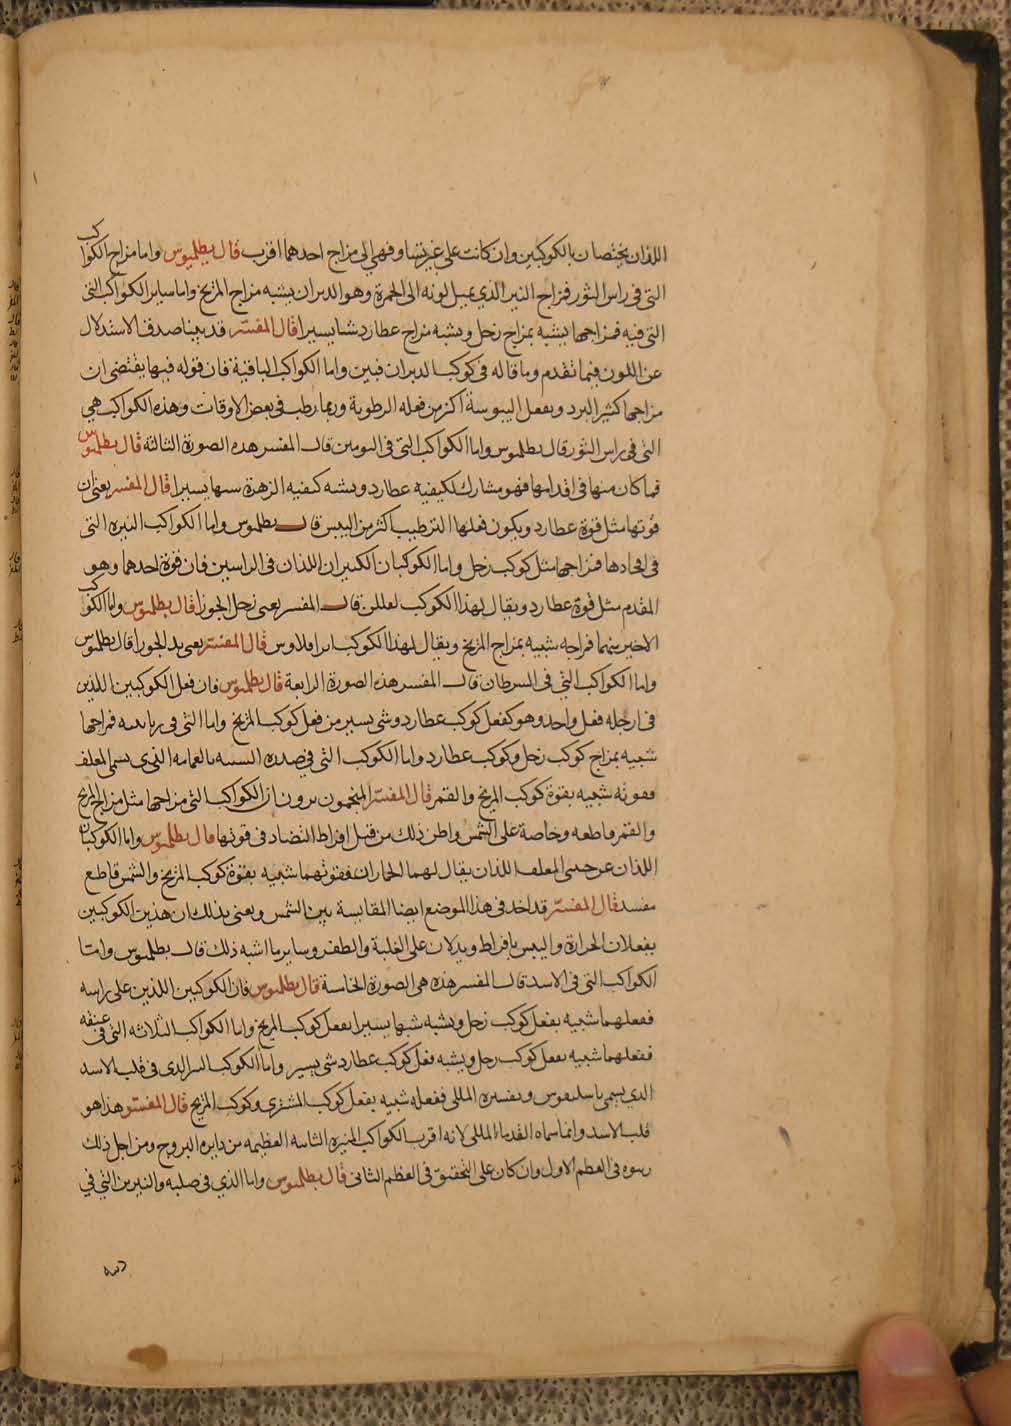 اللذان يختصان بالكوكبين وان كانت على غير تساو فهي الى مزاج احدهما اقرب قال بطلميوس واما مزاج الكواكب
التي في راس الثور فمزاج النير الذي يميل لونه الى الحمرة وهو الدبران يشبه مزاج المريخ واما ساير الكواكب التي
التي فيه فمزاجها يشبه بمزاج زحل ويشبه مزاج عطارد شيا يسيرا قال المفسر قد بينا صدق الاستدلال
عن اللون فيما تقدم وما قاله في كوكب الدبران فبين واما الكواكب الباقية فان قوله فيها يقتضي ان
مزاجها كثير البرد وبفعل اليبوسة اكثر من فعله الرطوبة وربما رطب في بعض الاوقات وهذه الكواكب هي
التي في راس الثور قال بطلميوس واما الكواكب التي في التومين قال المفسر هذه الصورة الثالثة قال بطلميوس
فما كان منها في اقدامها فهو مشارك لكيفية عطارد ويشبه كيفيه الزهرة شبها يسيرا قال المفسر يعني ان
قوتها مثل قوة عطارد ويكون فعلها الترطيب اكثر من اليبس قال بطلميوس واما الكواكب النيره التي
في افخادها فمزاجها مثل كوكب زحل واما الكوكبان الكبيران اللذان في الراسين فان قوة احدهما وهو
المقدم مثل قوة عطارد ويقال لهذا الكوكب قال المفسر يعني زحل الجوزا قال بطلميوس واما الكوكب
الاخير منهما فمزاجه شبيه بمزاج المريخ ويقال لهذا الكوكب قال المفسر يعني يد الجوزا قال بطلميوس
واما الكواكب التي في السرطان قال المفسر هذه الصورة الرابعة قال بطلميوس فان فعل الكوكبين اللذين
في ارجله فعل واحد وهو كفعل كوكب عطارد وشي يسير من فعل كوكب المريخ واما التي في فمزاجها
شبيه بمزاج كوكب زحل وكوكب عطارد واما الكوكب التي في صدره بالغمامه الذي يسمى المعلف
فقوته شبيه بقوة كوكب المريخ والقمر قال المفسر المنجمون يرون ان الكواكب التي مزاجها مثل مزاج المريخ
والقمر قاطعه وخاصة على الشمس واظن ذلك من قبل افراط التضاد في قوتها قال بطلميوس واما الكوكبان
اللذان عن جنبي المعلف اللذان يقال لهما الحماران فقوتهما شبيه بقوة كوكب المريخ والشمس قاطع
مفسد قال المفسر قد اخد في هذا الموضع ايضا المقايسة بين الشمس ويعني بذلك ان هذين الكوكبين
يفعلان الحرارة واليبس بافراط ويدلان على الغلبة والظفر وساير ما اشبه ذلك قال بطلميوس واما
الكواكب التي في الاسد قال المفسر هذه هي الصورة الخامسة قال بطلميوس فان الكوكبين اللذين على راسه
ففعلهما شبيه بفعل كوكب زحل ويشبه شبها يسيرا بفعل كوكب المريخ واما الكواكب الثلاثه التي في عنقه
ففعلهما شبيه بفعل كوكب زحل ويشبه فعل كوكب عطارد شي يسير واما الكوكب النير الذي في قلب الاسد
الذي يسمى وتفسيره الملكي ففعله شبيه بفعل كوكب المشتري وكوكب المريخ قال المفسر هذا هو
قلب الاسد وانما سماه القدما الملكي لانه اقرب الكواكب النيره الثابته العظيمه من دايره البروج ومن اجل ذلك
في العظم الاول وان كان على التحقيق في العظم الثاني قال بطلميوس واما الذي في صلبه والنيرين التي في